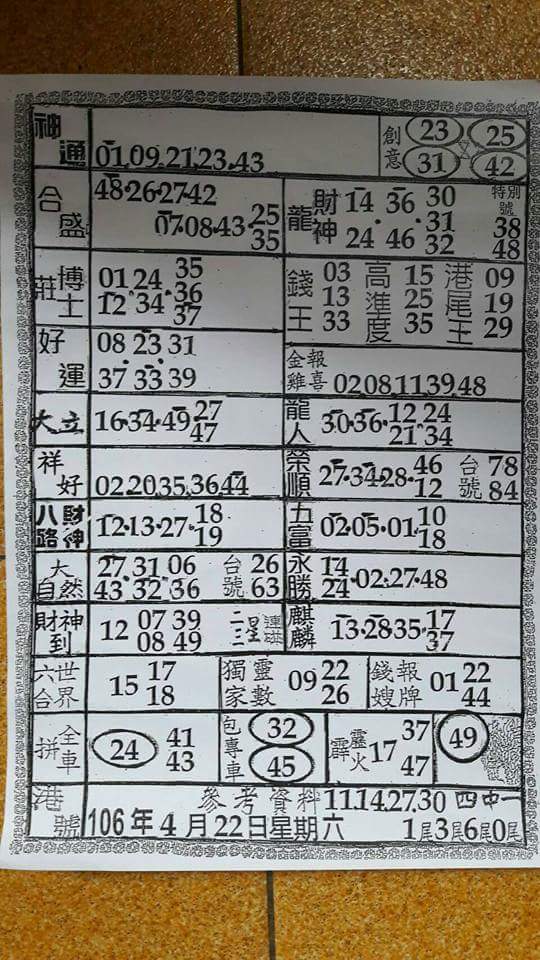 神通 01.09.21.23.43 創意 23 25
31 42
合盛 48.26.27.42
07.08.43.25
35
龍 財神 14 36 30 特別號
31 38
24 46 32 48
莊 博士 01 24 35
36
12 34 37
錢王 03 高進度 15 港尾王 09
13 25 19
33 35 29
好運 08 23 31
37 33 39
金雞報喜 02.08.11.39.48
大立 16.34.49.27
47
龍人 30.36.12 24
21 34
祥好 02.20.35.36.44
榮順 27.34.28.46 台號 78
12 84
八路財神 12.13.27.18
19
五富 02.05.01.10
18
大自然 27 31 06 台號 26
43 32 36 63
永勝 14
24.02.27.48
財神到 12 07 39 二三星連碰
08 49
麒麟 13.28.35.17
37
六合世界 15 17
18
獨家靈數 09 22
26
錢嫂報牌 01 22
44
全車拼 24 41
43
包專車 32
45
霹靂火 17 37
47
49
港號 參考資料 11.14.27.30 四中一
106年4月22日星期六 1尾3尾6尾0尾